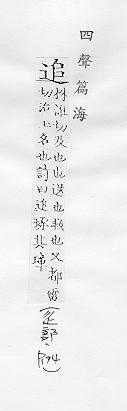 四聲篇海
追
隹切及也送也救也又都雷
切治玉名也詩曰追琢其璋
(辵部